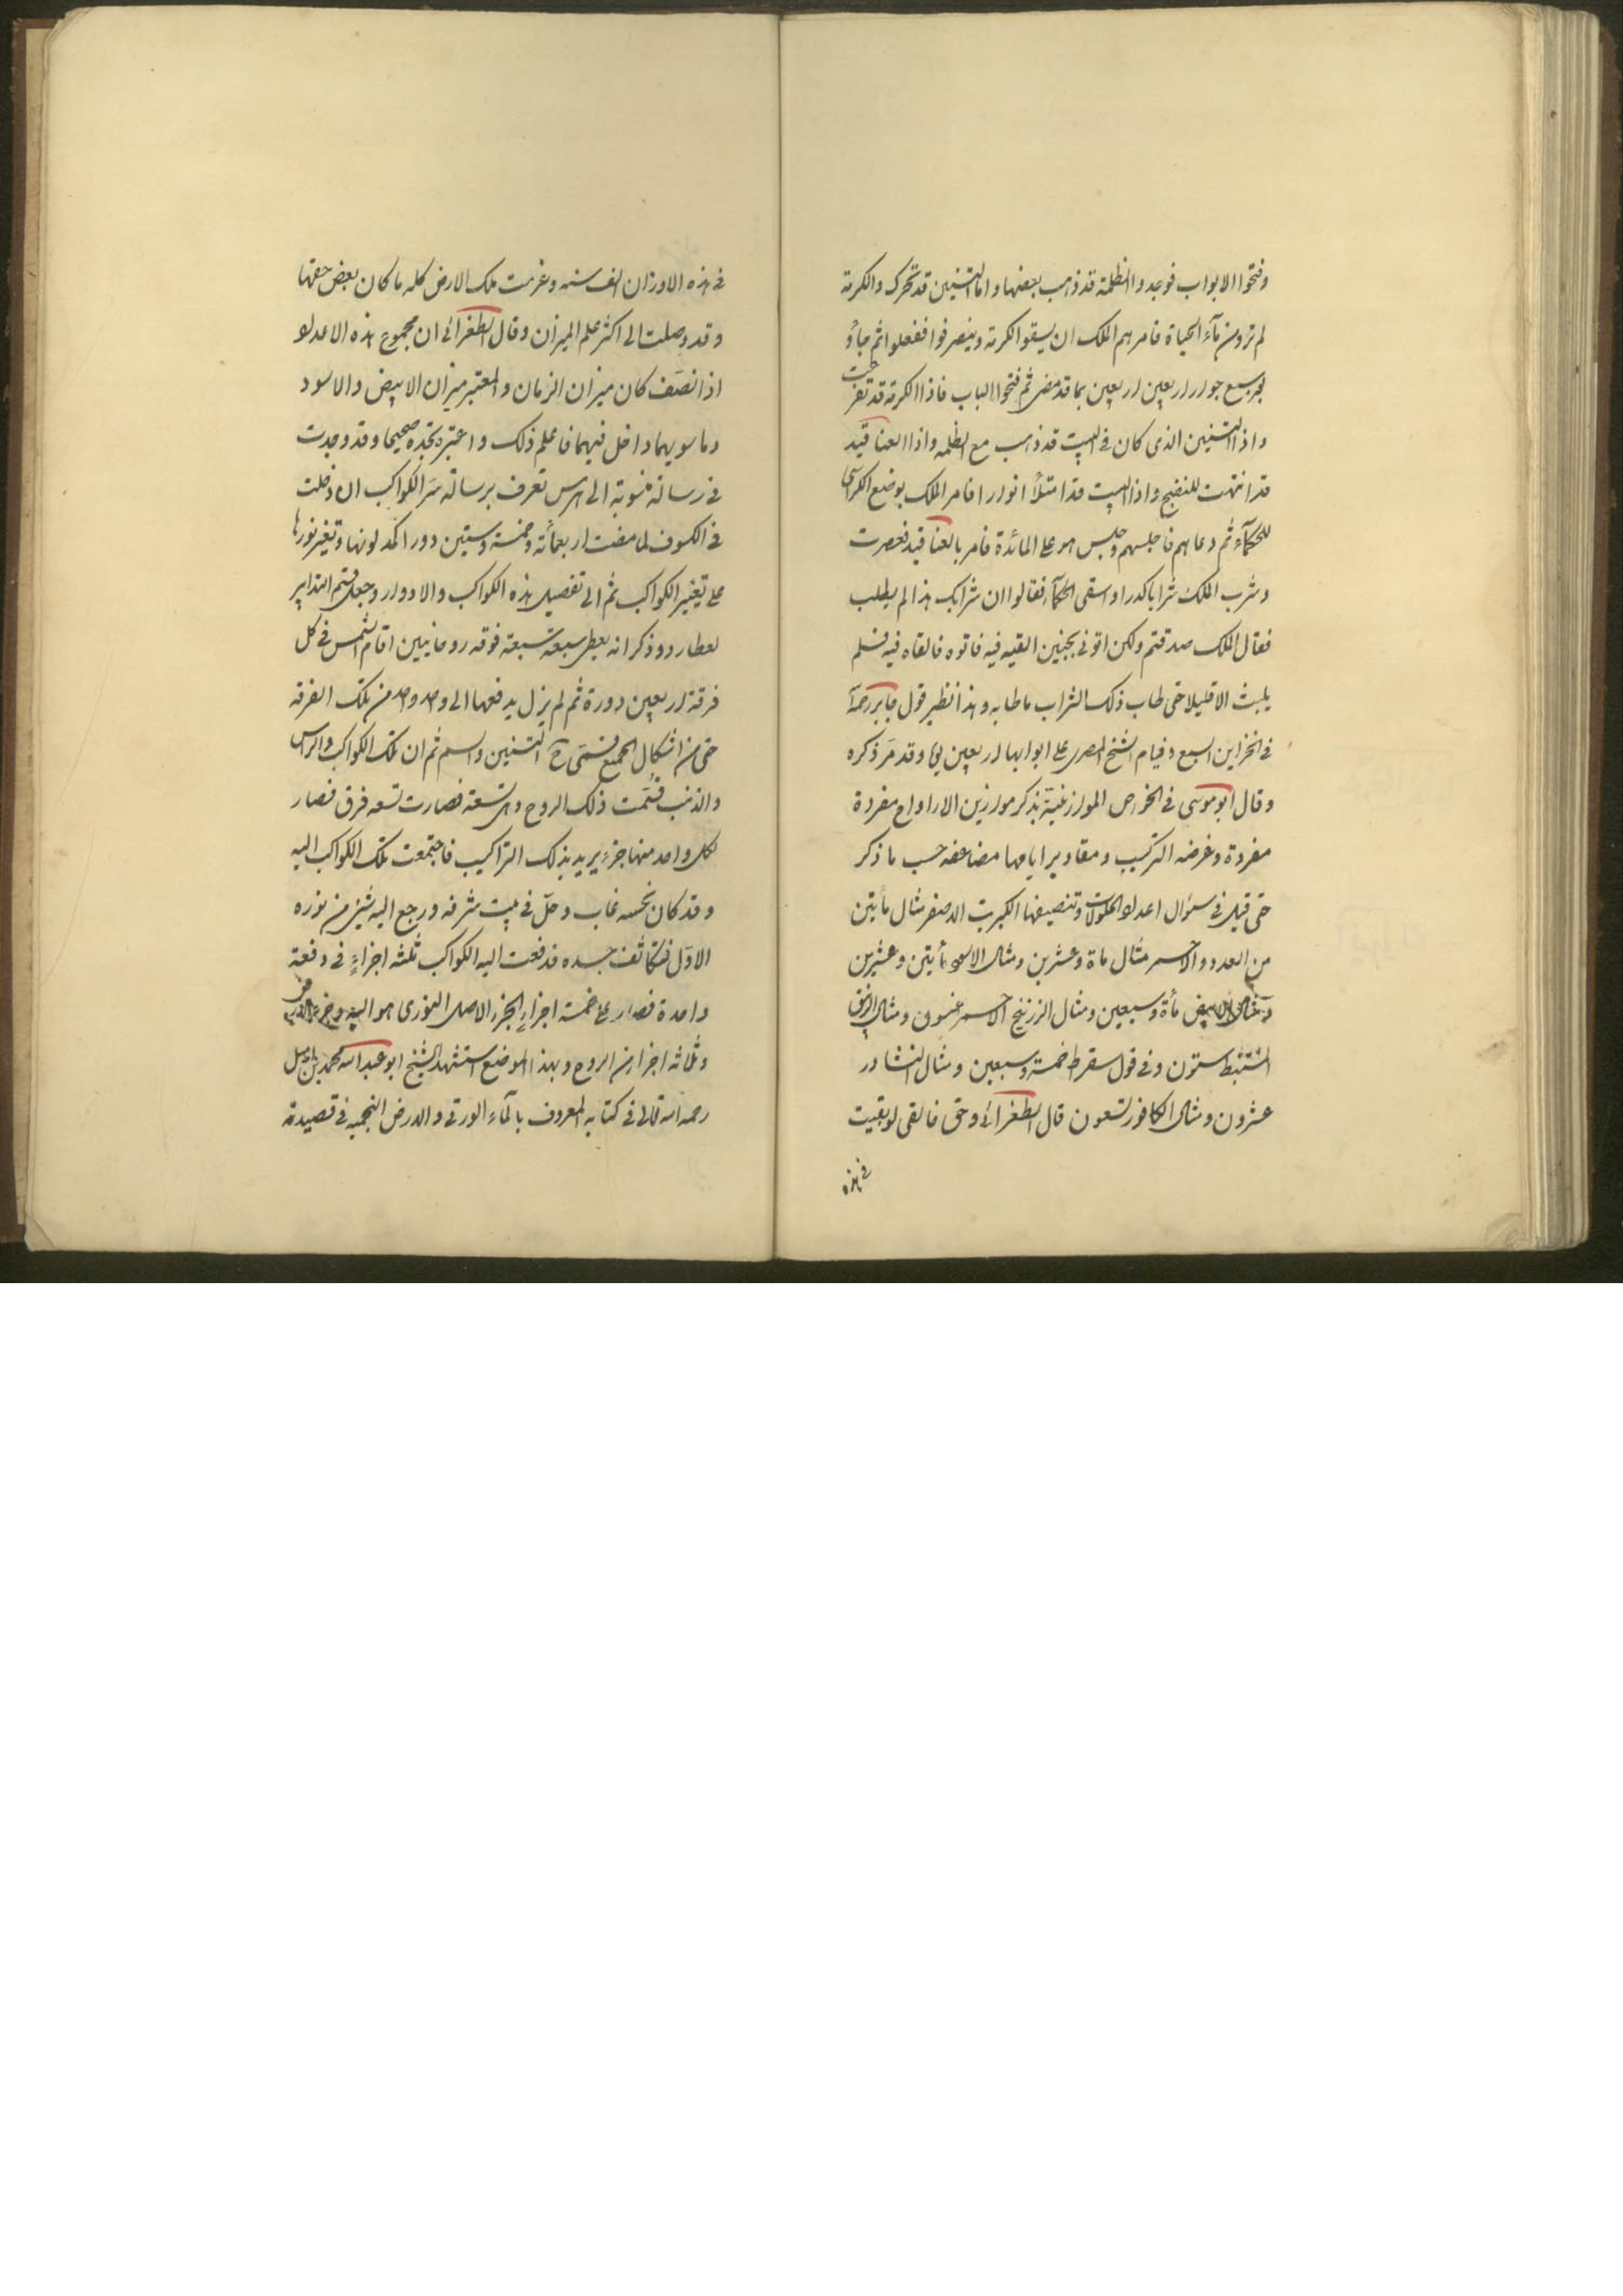 وفتحوا الابواب فوجدوا الظلمة قد ذهب بعضها واما التنين قد تحرك والكرمة
لم ترو من مآء الحياة فامرهم الملك ان يسقوا الكرمة وينصرفوا ففعلوا ثم جاؤ
اربعين بما قد مضى ثم فتحوا الباب فاذا الكرمة قد تفرعت
واذا التنين الذى كان فى البيت قد ذهب مع الظلمه واذا العناقيد
قد انتهت للنضج واذا البيت قد امتلأ انوارا فامر الملك بوضع الكراسى
للحكمآء ثم دعاهم فاجلسهم وجلس هو على المائدة فامر بالعناقيد فعصرت
وشرب الملك شرابا كدرا واسقى الحكمآء فقالوا ان شرابك هذا لم يطب
فقال الملك صدقتم ولكن اتونى بجنين القيه فيه فاتوه فالقاه فيه فلم
يلبث الا قليلا حتى طاب ذلك الشراب ما طابه وهذا نظير قول جابر رحمه
فى الخزاين السبع وقيام الشيخ المصرى على ابوابها اربعين وقد مر ذكره
وقال ابو موسى فى الخواص الموازينية بذكر موازين الارواح مفردة
مفردة وغرضه التركيب ومقادير ايامها مضاعفه حسب ما ذكر
حتى قيل فى سؤال اعداد وتنصيفها الكبريت الاصفر مثال مأيتين
من العدد والاحمر مثال ماة وعشرين ومثال الاسود مأيتين وعشرين
ومثال الابيض مأة وسبعين ومثال الزرنيخ الاحمر خمسون ومثال الزيبق
المستنبط ستون وفى قول سقراط خمسة وسبعين ومثال النشادر
عشرون ومثال الكافور تسعون قال الطغرائى وحق خالقى لو بقيت
فى هذه
فى هذه الاوزان الف سنه وغرمت ملك الارض كله ما كان بعض حقها
وقد وصلت الى اكثر علم الميزان وقال الطغرائى ان مجموع هذه الاعداد
اذا نصف كان ميزان الزمان والمعتبر ميزان الابيض والاسود
وما سويهما داخل فيهما فاعلم ذلك واعتبره تجده صحيحا وقد وجدت
فى رسالة منسوبة الى هرمس تعرف برسالة سر الكواكب ان دخلت
فى الكسوف لما مضت اربعمائة وخمسة وستين دورا اكمد لونها وتغير نورها
على تغيير الكواكب ثم الى تفصيل هذه الكواكب والادوار وجعل قسم التدابير
لعطارد وذكر انه يعطى سبعة سبعة فوقه روحانيين اقام الشمس فى كل
فرقة اربعين دورة ثم لم يزل يدفعها الى واحد واحد من تلك الفرقه
حتى من اشكال الجميع فسمى التنين والسم ثم ان تلك الكواكب والراس
والذنب قسمت ذلك الروح وهى تسعة فصارت تسعه فرق فصار
لكل واحد منها جزء يريد بذلك التراكيب فاجتمعت تلك الكواكب اليه
وقد كان نحسه غاب وحل فى بيت شرفه ورجع اليه شئ من نوره
الاول فتكاثف جسده فدفعت اليه الكواكب ثلثه اجزاء فى دفعة
واحدة فصار على خمسة اجزاء الجزء الاصل النورى هو اليه وجزء
وثلاثه اجزا من الروح وبهذا الموضع استشهد الشيخ ابو عبد الله محمد بن اميل
رحمه الله تعالى فى كتابه المعروف بالمآء الورقى والارض النجميه فى قصيدته